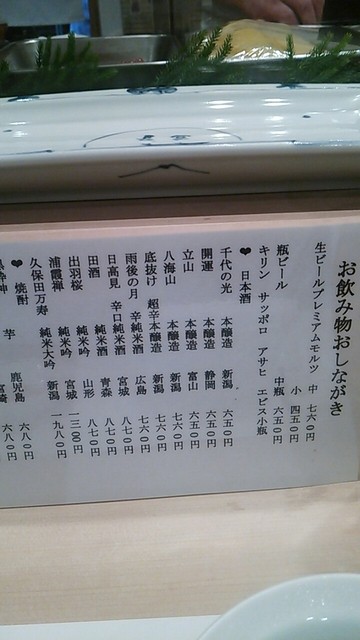 お飲み物おしながき
生ビールプレミアムモルツ 中 七六〇円
小 四五〇円
瓶ビール 中瓶 六五〇円
キリン サッポロ アサヒ エビス小瓶
❤ 日本酒
千代の光 本醸造 新潟 六五〇円
開運 本醸造 静岡 六五〇円
立山 本醸造 富山 六五〇円
八海山 本醸造 新潟 七六〇円
底抜け 超辛本醸造 新潟 七六〇円
雨後の月 辛純米酒 広島 七六〇円
日高見 辛口純米酒 宮城 八七〇円
田酒 純米酒 青森 八七〇円
出羽桜 純米吟 山形 八七〇円
浦霞禅 純米吟 宮城 一三〇〇円
久保田万寿 純米大吟 新潟 一九八〇円
❤ 焼酎
芋 鹿児島 六八〇円
宮崎 六八〇円